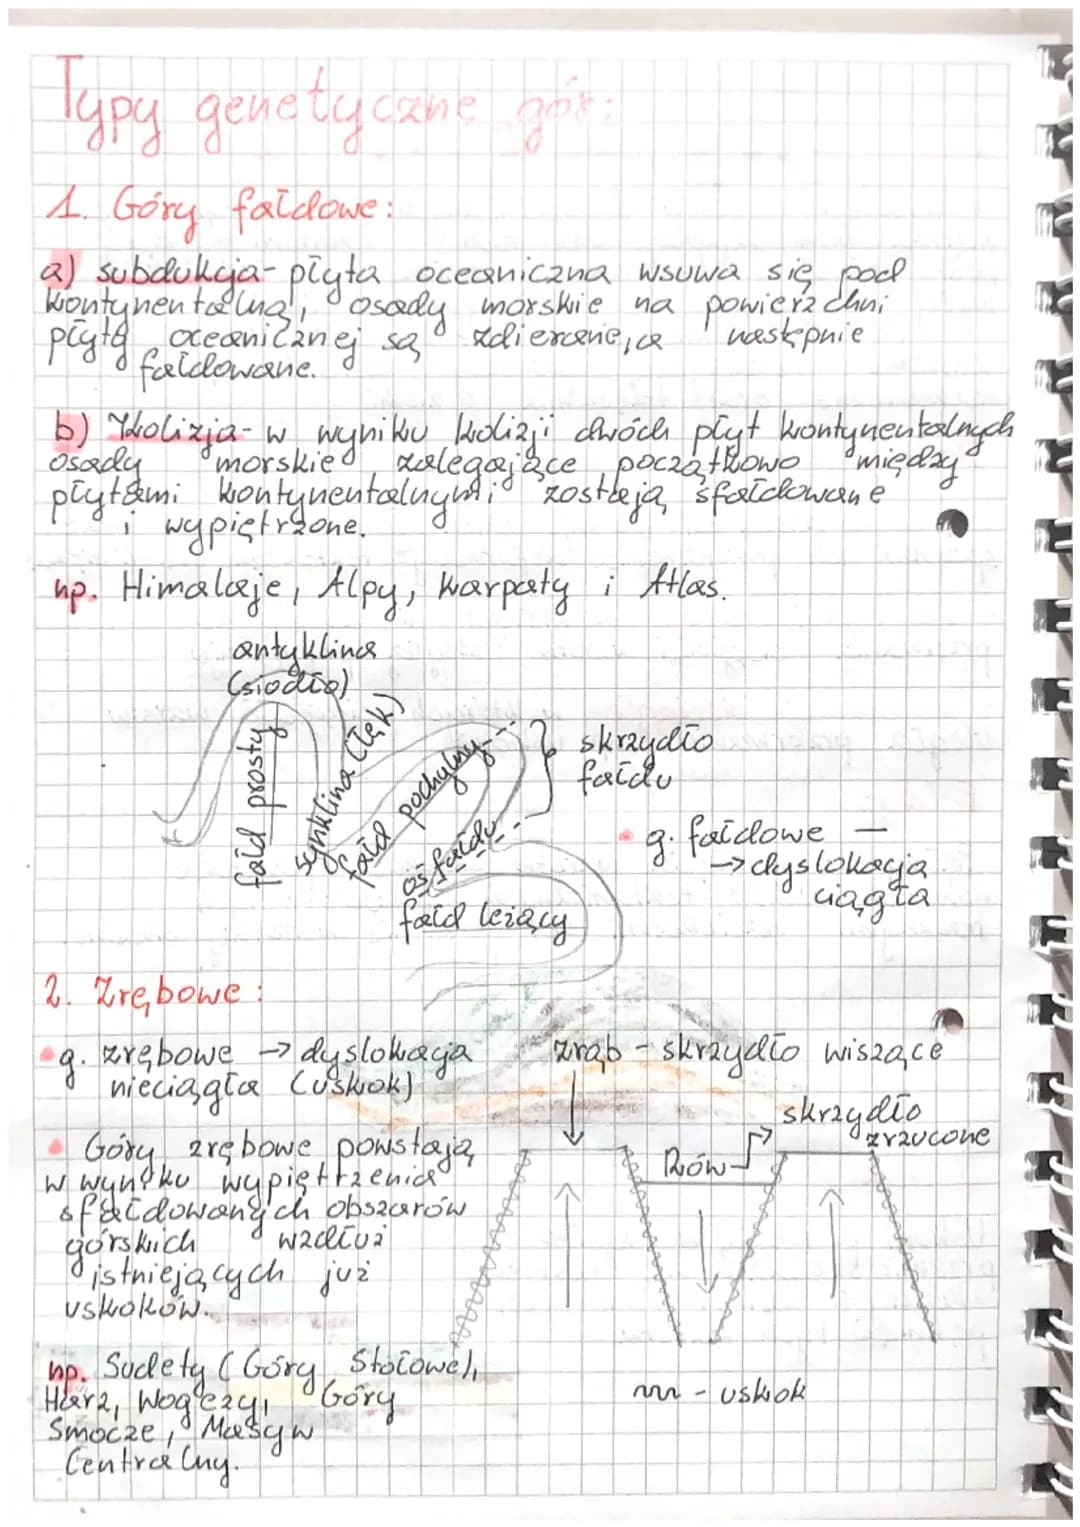 Typy genetyczne gór:
1. Góry fałdowe:
a) subdukcja- płyta oceaniczna wsuwa się pod
kontynentalną, osady morskie na powierzchni
płyty oceanicznej są zdzierane, a następnie
fałdowane.
b) Kolizja- w wyniku kolizji dwóch płyt kontynentalnych
osady morskie zalegające początkowo między
płytami kontynentalnymi zostają sfałdowane
i wypiętrzone.
np. Himalaje, Alpy, Karpaty i Atlas.
antyklina
(siodło)
fałd prosty
synklina (łęk)
fałd pochylny
oś fałdu
fałd leżący
skrzydło
fałdu
g. fałdowe —
→ dyslokacja
ciągła
2. Zrębowe:
g. zrębowe → dyslokacja
nieciągła (uskok)
zrąb - skrzydło wiszące
skrzydło
zrzucone
Rów
Góry zrębowe powstają
w wyniku wypiętrzenia
sfałdowanych obszarów
górskich wzdłuż
istniejących już
uskoków.
np. Sudety (Góry Stołowe),
Harz, Wogezy, Góry
Smocze, Masyw
Centralny.
- uskok